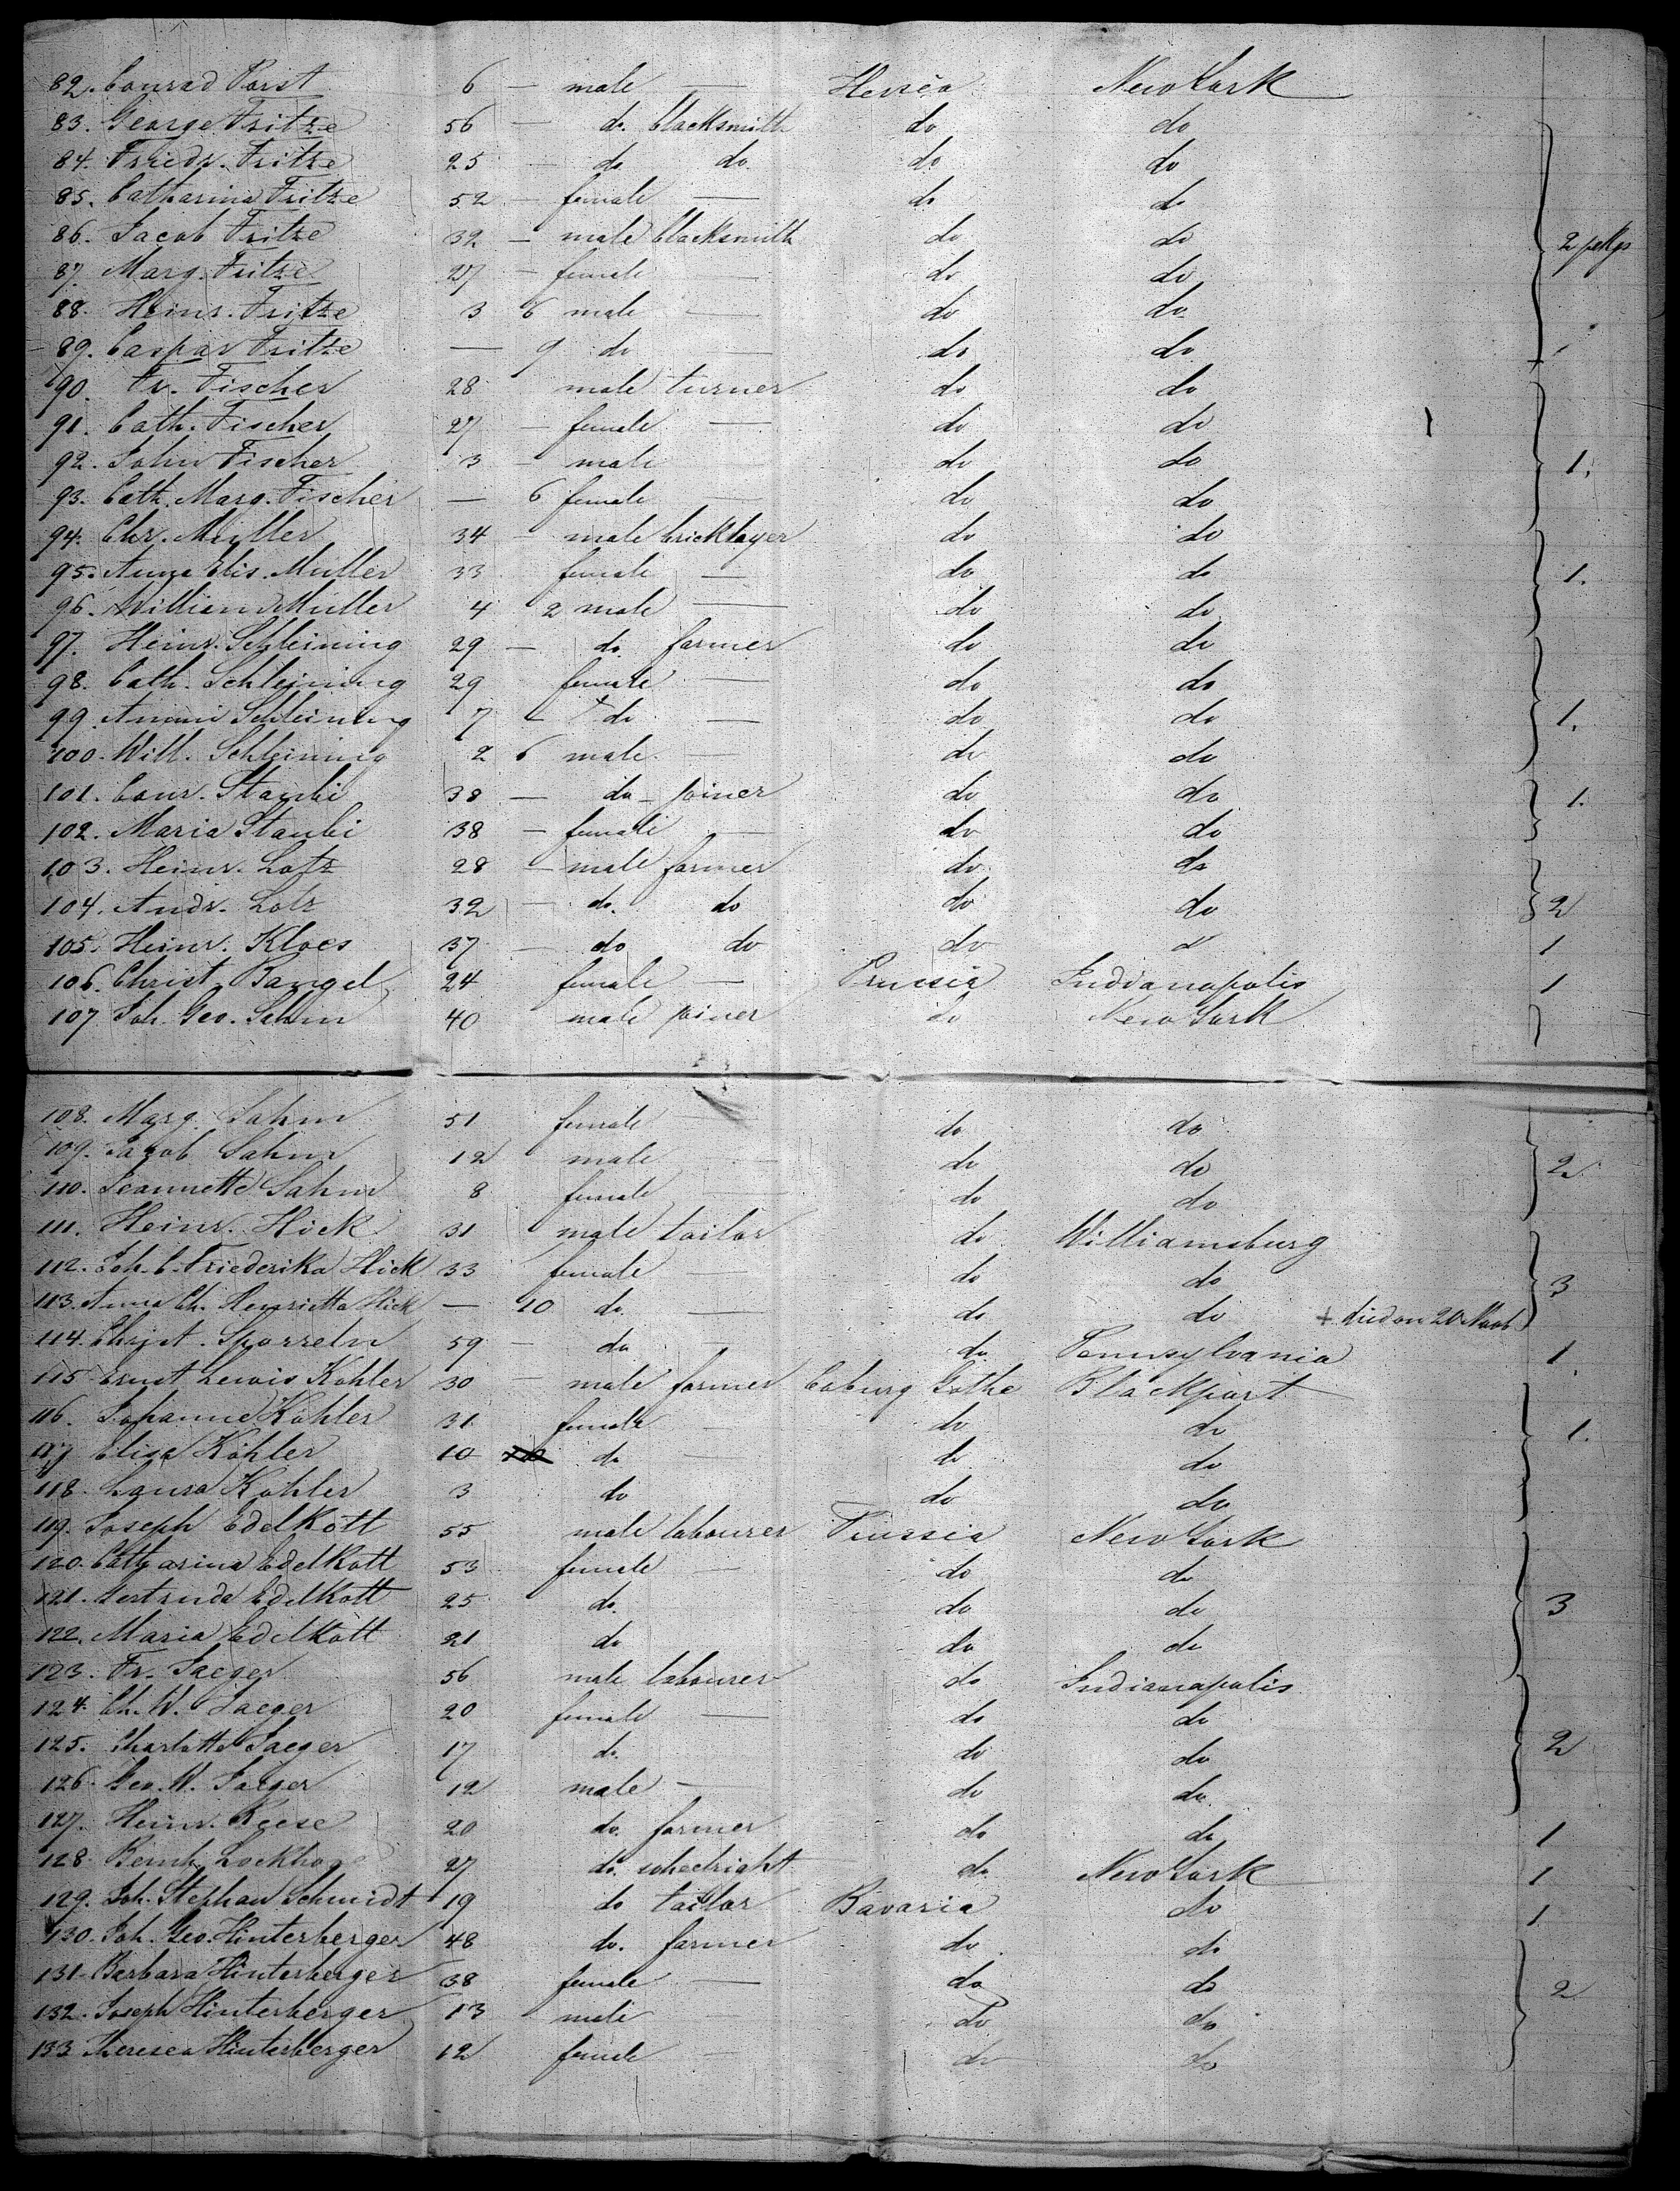 82. Conrad Porst 6 — male — Hessen New York
83. George Fritze 56 — do. blacksmith do do
84. Friedr. Fritze 25 — do do do do
85. Catharina Fritze 52 — female — do do
86. Jacob Fritze 32 — male blacksmith do do
87. Marg. Fritze 27 — female — do do 2 pkgs
88. Heinr. Fritze 3 6 male — do do
89. Caspar Fritze — 9 do — do do
90. Fr. Fischer 28 male turner do do
91. Cath. Fischer 27 — female — do do
92. John Fischer 3 — male do do 1.
93. Cath. Marg. Fischer — 6 female do do
94. Chr. Müller 34 — male bricklayer do do
95. Anna Elis. Müller 33 female — do do 1.
96. William Müller 4 2 male — do do
97. Heinr. Schleining 29 — do. farmer do do
98. Cath. Schleining 29 female — do do
99. Schleining 7 — do — do do 1.
100. Will. Schleining 2 6 male. — do do
101. Conr. Staubi 38 — do joiner do do 1.
102. Maria Staubi 38 — female — do do
103. Heinr. Lotz 28 — male farmer do do
104. Andr. Lotz 32 — do. do do do 2
105. Heinr. Kloes 37 — do do do d 1
106. Christ. Bangel 24 female — Prussia Indianapolis 1
107 Joh. Geo. Sahm 40 male joiner do New York
108. Marg. Sahm 51 female — do do
109. Jacob Sahm 12 male — do do 2
110. Jeannette Sahm 8 female — do do
111. Heinr. Hick 31 male tailor do Williamsburg
112. Joh. C. Friederika Hick 33 female — do do 3
113. Anna Ch. Henrietta Hick — 10 do. — do do + died on 20 Novb
114. Christ. Sporreln 59 — do — do Pennsylvania 1.
115 Ernst Lewis Köhler 30 — male farmer Coburg Gotha Blackport
116. Johanne Köhler 31 female — do do 1.
117 Elisa Köhler 10 do — do do
118. Laura Köhler 3 do do do
119. Joseph Edelkott 55 male labourer Prussia New York
120. Catharina Edelkott 53 female — do do
121. Gertruda Edelkott 25 do. do do 3
122. Maria Edelkott 21 do do do
123. Fr. Jaeger 56 male labourer do Indianapolis
124. Ch. W. Jaeger 20 female — do do
125. Charlotte Jaeger 17 do. do do 2
126. Geo. W. Jaeger 12 male — do do.
127. Heinr. Reese 20 do. farmer do do 1
128. Bernh. 27 do. wheelright do New York 1
129. Joh. Stephan Schmidt 19 do tailor Bavaria do 1
130. Joh. Geo. Hinterberger 48 do. farmer do do
131. Barbara Hinterberger 38 female — do do 2
132. Joseph Hinterberger 13 male — do do
133 Theresea Hinterberger 12 female — do do